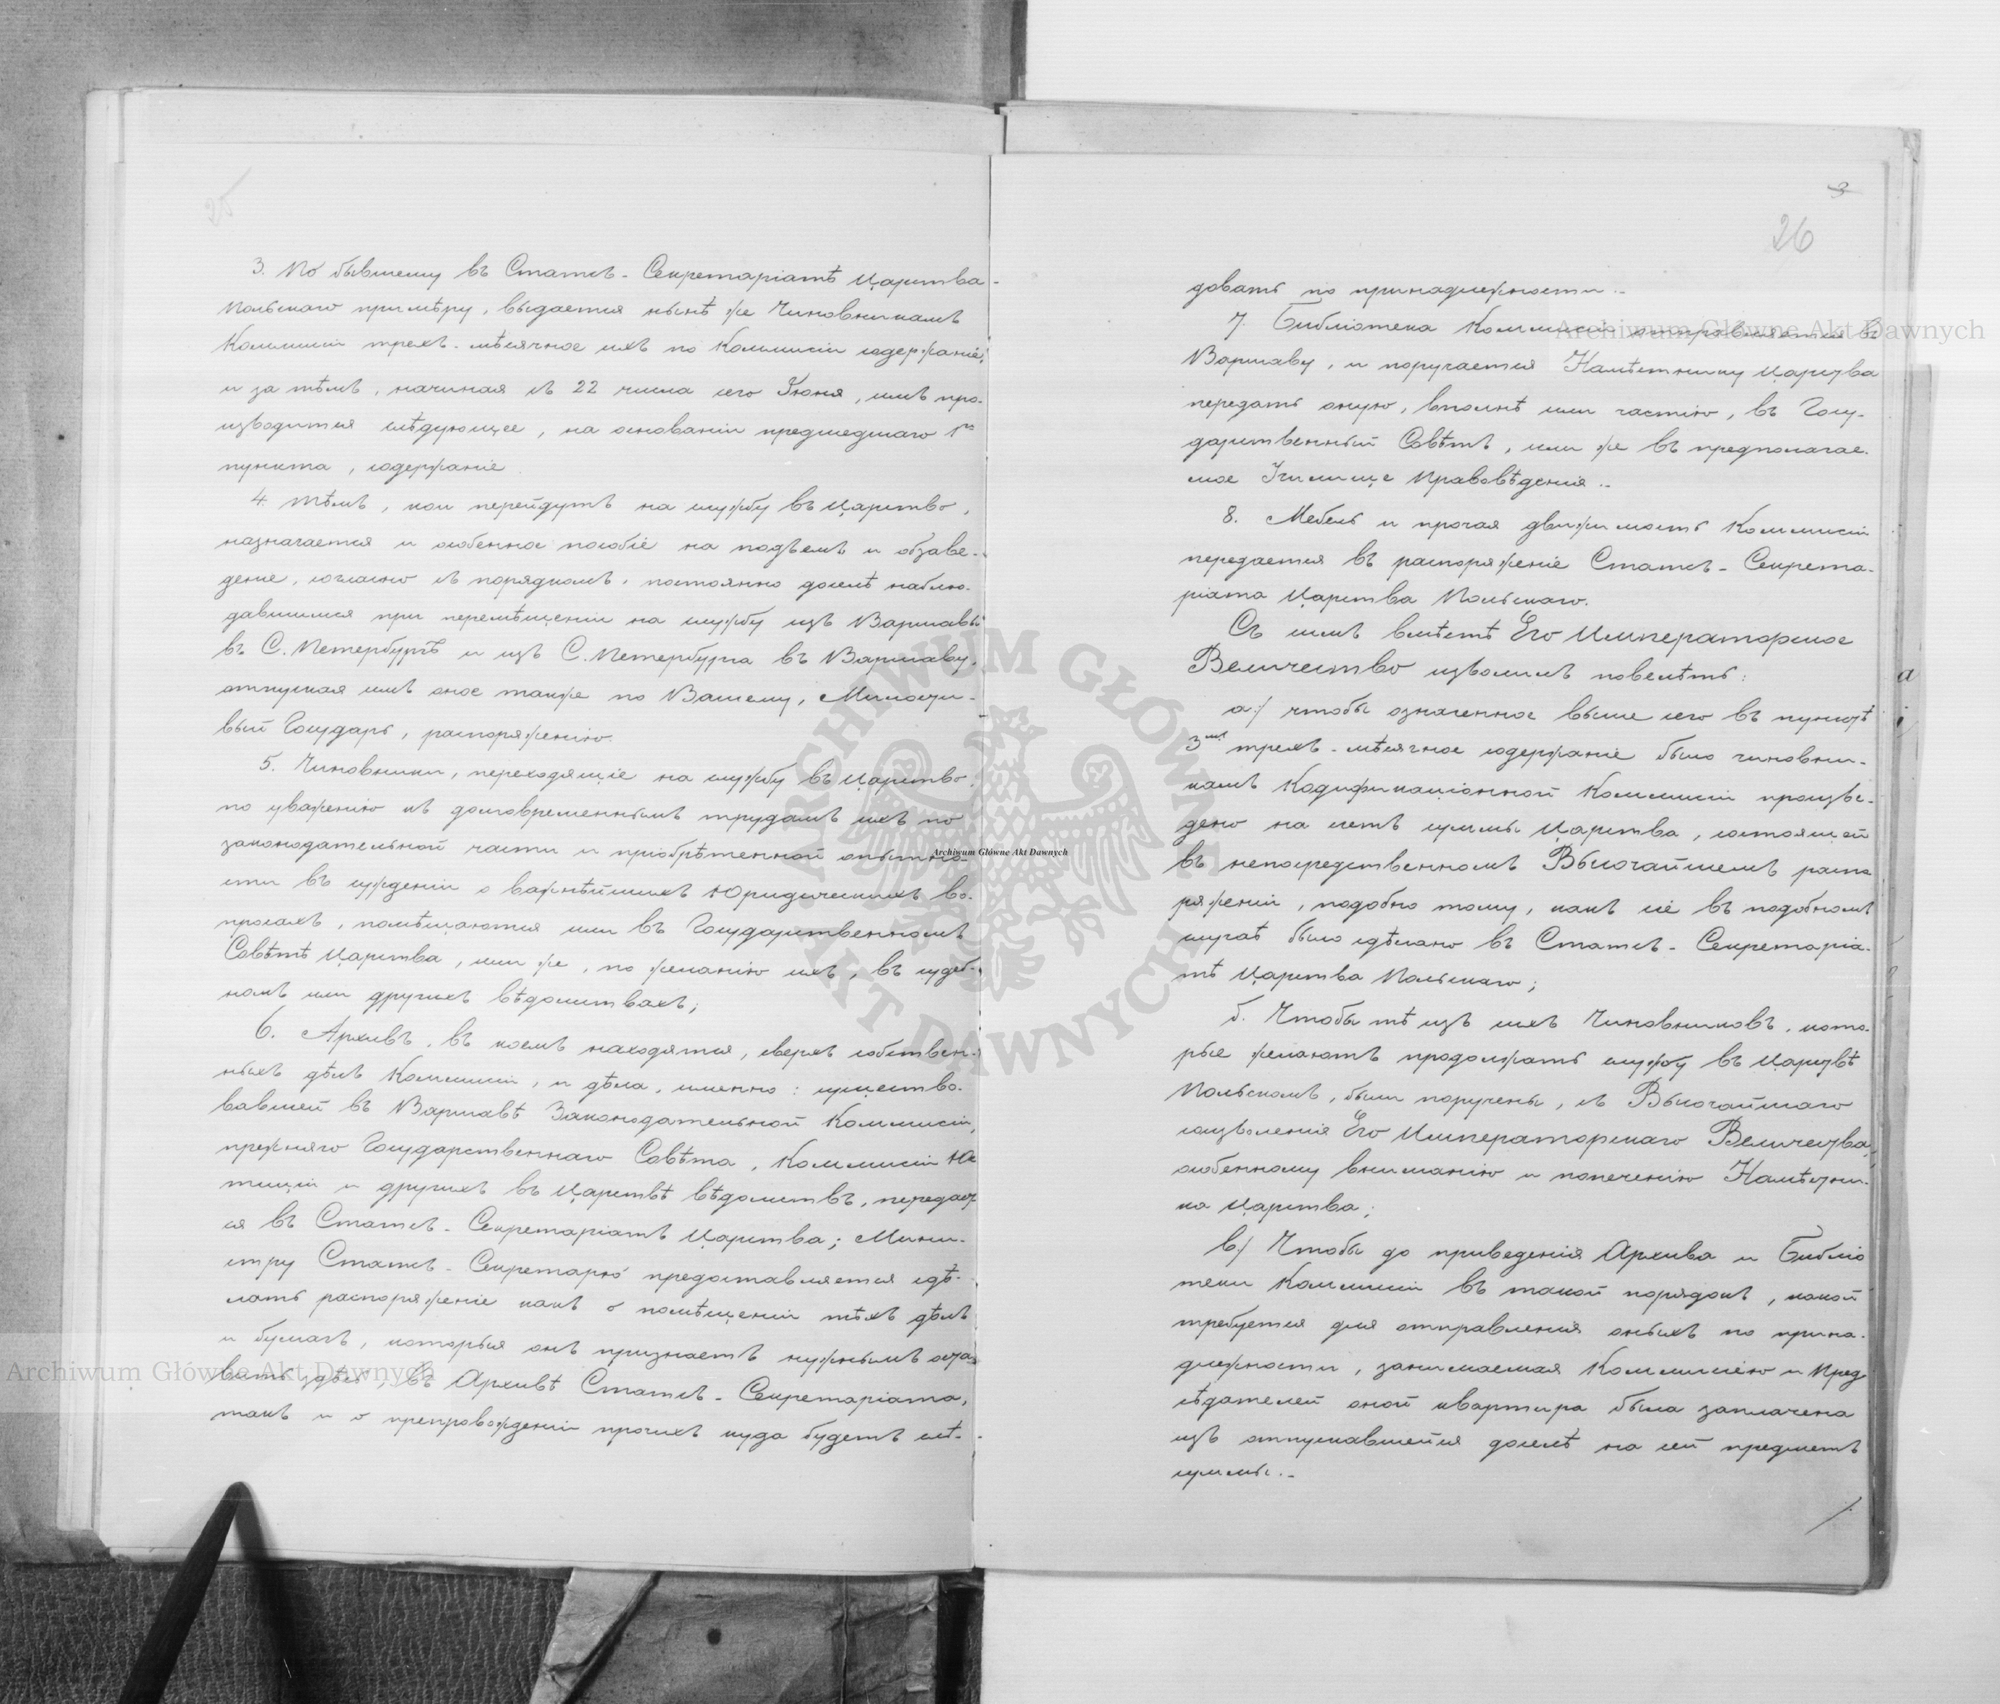 25
3. По бывшему въ Статсъ-Секретаріатѣ Царства
Польскаго примѣру, выдается нынѣ же Чиновникамъ
Коммисіи трехъ-мѣсячное ихъ по Коммисіи содержаніе,
и за тѣмъ, начиная съ 22 числа сего Іюня, имъ про-
изводится слѣдующее, на основаніи предшедшаго 1го
пункта, содержаніе.
4. Тѣмъ, кои перейдутъ на службу въ Царство,
назначается и особенное пособіе на подъемъ и обзаве-
деніе, согласно съ порядкомъ, постоянно доселѣ наблю-
давшимся при перемѣщеніи на службу изъ Варшавы
въ С. Петербургъ и изъ С. Петербурга въ Варшаву,
отпуская имъ оное также по Вашему, Милости-
вый Государь, распоряженію.
5. Чиновники, переходящіе на службу въ Царство,
по уваженію къ долговременнымъ трудамъ ихъ по
законодательной части и пріобрѣтенной опытно-
сти въ сужденіи о важнѣйшихъ Юридическихъ во-
просахъ, помѣщаются или въ Государственномъ
Совѣтѣ Царства, или же, по желанію ихъ, въ судеб-
номъ или другихъ вѣдомствахъ;
6. Архивъ, въ коемъ находятся, сверхъ собствен-
ныхъ дѣлъ Коммисіи, и дѣла, именно: существо-
вавшей въ Варшавѣ Законодательной Коммисіи,
прежняго Государственнаго Совѣта, Коммисіи Юс
тиціи и другихъ въ Царствѣ вѣдомствъ, передает
ся въ Статсъ-Секретаріатъ Царства; Мини-
стру Статсъ-Секретарю предоставляется сдѣ-
лать распоряженіе какъ о помѣщеніи тѣхъ дѣлъ
и бумагъ, которыя онъ признаетъ нужнымъ оста
вить здѣсь, въ Архивѣ Статсъ-Секретаріата,
такъ и о препровожденіи прочихъ куда будетъ слѣ-
3
26
довать по принадлежности.-
7. Библіотека Коммисіи отправляется въ
Варшаву, и поручается Намѣстнику Царства
передать оную, вполнѣ или частію, въ Госу-
дарственный Совѣтъ, или же въ предполагае-
мое Училище Правовѣденія.-
8. Мебель и прочая движимость Коммисіи
передается въ распоряженіе Статсъ-Секрета-
ріата Царства Польскаго.
Съ симъ вмѣстѣ Его Императорское
Величество изволилъ повелѣть:
а) чтобы означенное выше сего въ пунктѣ
3мъ трехъ-мѣсячное содержаніе было чиновни-
камъ Кодификаціонной Коммисіи произве-
дено на счетъ суммы Царства, состоящей
въ непосредственномъ Высочайшемъ распо
ряженіи, подобно тому, какъ сіе въ подобномъ
случаѣ было сдѣлано въ Статсъ-Секретаріа-
тѣ Царства Польскаго;
б. Чтобы тѣ изъ ихъ Чиновниковъ, кото-
рые желаютъ продолжать службу въ Царствѣ
Польскомъ, были поручены, съ Высочайшаго
соизволенія Его Императорскаго Величества,
особенному вниманію и попеченію Намѣстни-
ка Царства;
в) Чтобы до приведенія Архива и Библіо
теки Коммисіи въ такой порядокъ, какой
требуется для отправленія оныхъ по прина-
длежности, занимаемая Коммисіею и Пред
сѣдателей оной квартира была заплачена
изъ отпускавшейся доселѣ на сей предметъ
суммы.-
Archiwum Główne Akt Dawnych
Archiwum Główne Akt Dawnych
Archiwum Główne Akt Dawnych
ARCHIWUM GŁÓWNE AKT DAWNYCH